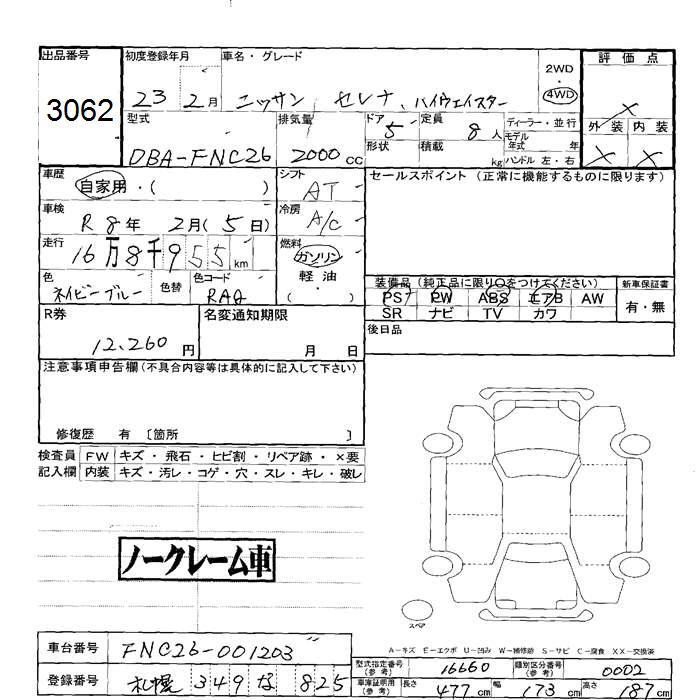 出品番号 3062
初度登録年月 23 2月
車名・グレード ニッサン セレナ、ハイウェイスター
2WD・4WD
評価点 ×
外装 × 内装 ×
型式 DBA-FNC26
排気量 2000cc
ドア 5 形状
定員 8人 積載 kg
ディーラー・並行
モデル年式 年
ハンドル 左・右
車歴 自家用・( )
シフト AT
セールスポイント (正常に機能するものに限ります)
車検 R8年 2月(5日)
冷房 A/C
走行 16万8千955km
燃料 ガソリン 軽油・( )
色 ネイビーブルー 色替
色コード RAQ
装備品 (純正品に限り○をつけてください)
PS PW ABS エアB AW
SR ナビ TV カワ
新車保証書 有・無
R券 12,260円
名変通知期限 月 日
後日品
注意事項申告欄 (不具合内容等は具体的に記入して下さい)
修復歴 有 〔箇所 〕
検査員 FW キズ・飛石・ヒビ割・リペア跡・×要
記入欄 内装 キズ・汚レ・コゲ・穴・スレ・キレ・破レ
ノークレーム車
スペア
A-キズ E-エクボ U-凹み W-補修跡 S-サビ C-腐食 XX-交換済
車台番号 FNC26-001203
登録番号 札幌 349 な 825
型式指定番号(参考) 16660
類別区分番号(参考) 0002
車庫証明用(参考) 長さ 477cm 幅 173cm 高さ 187cm